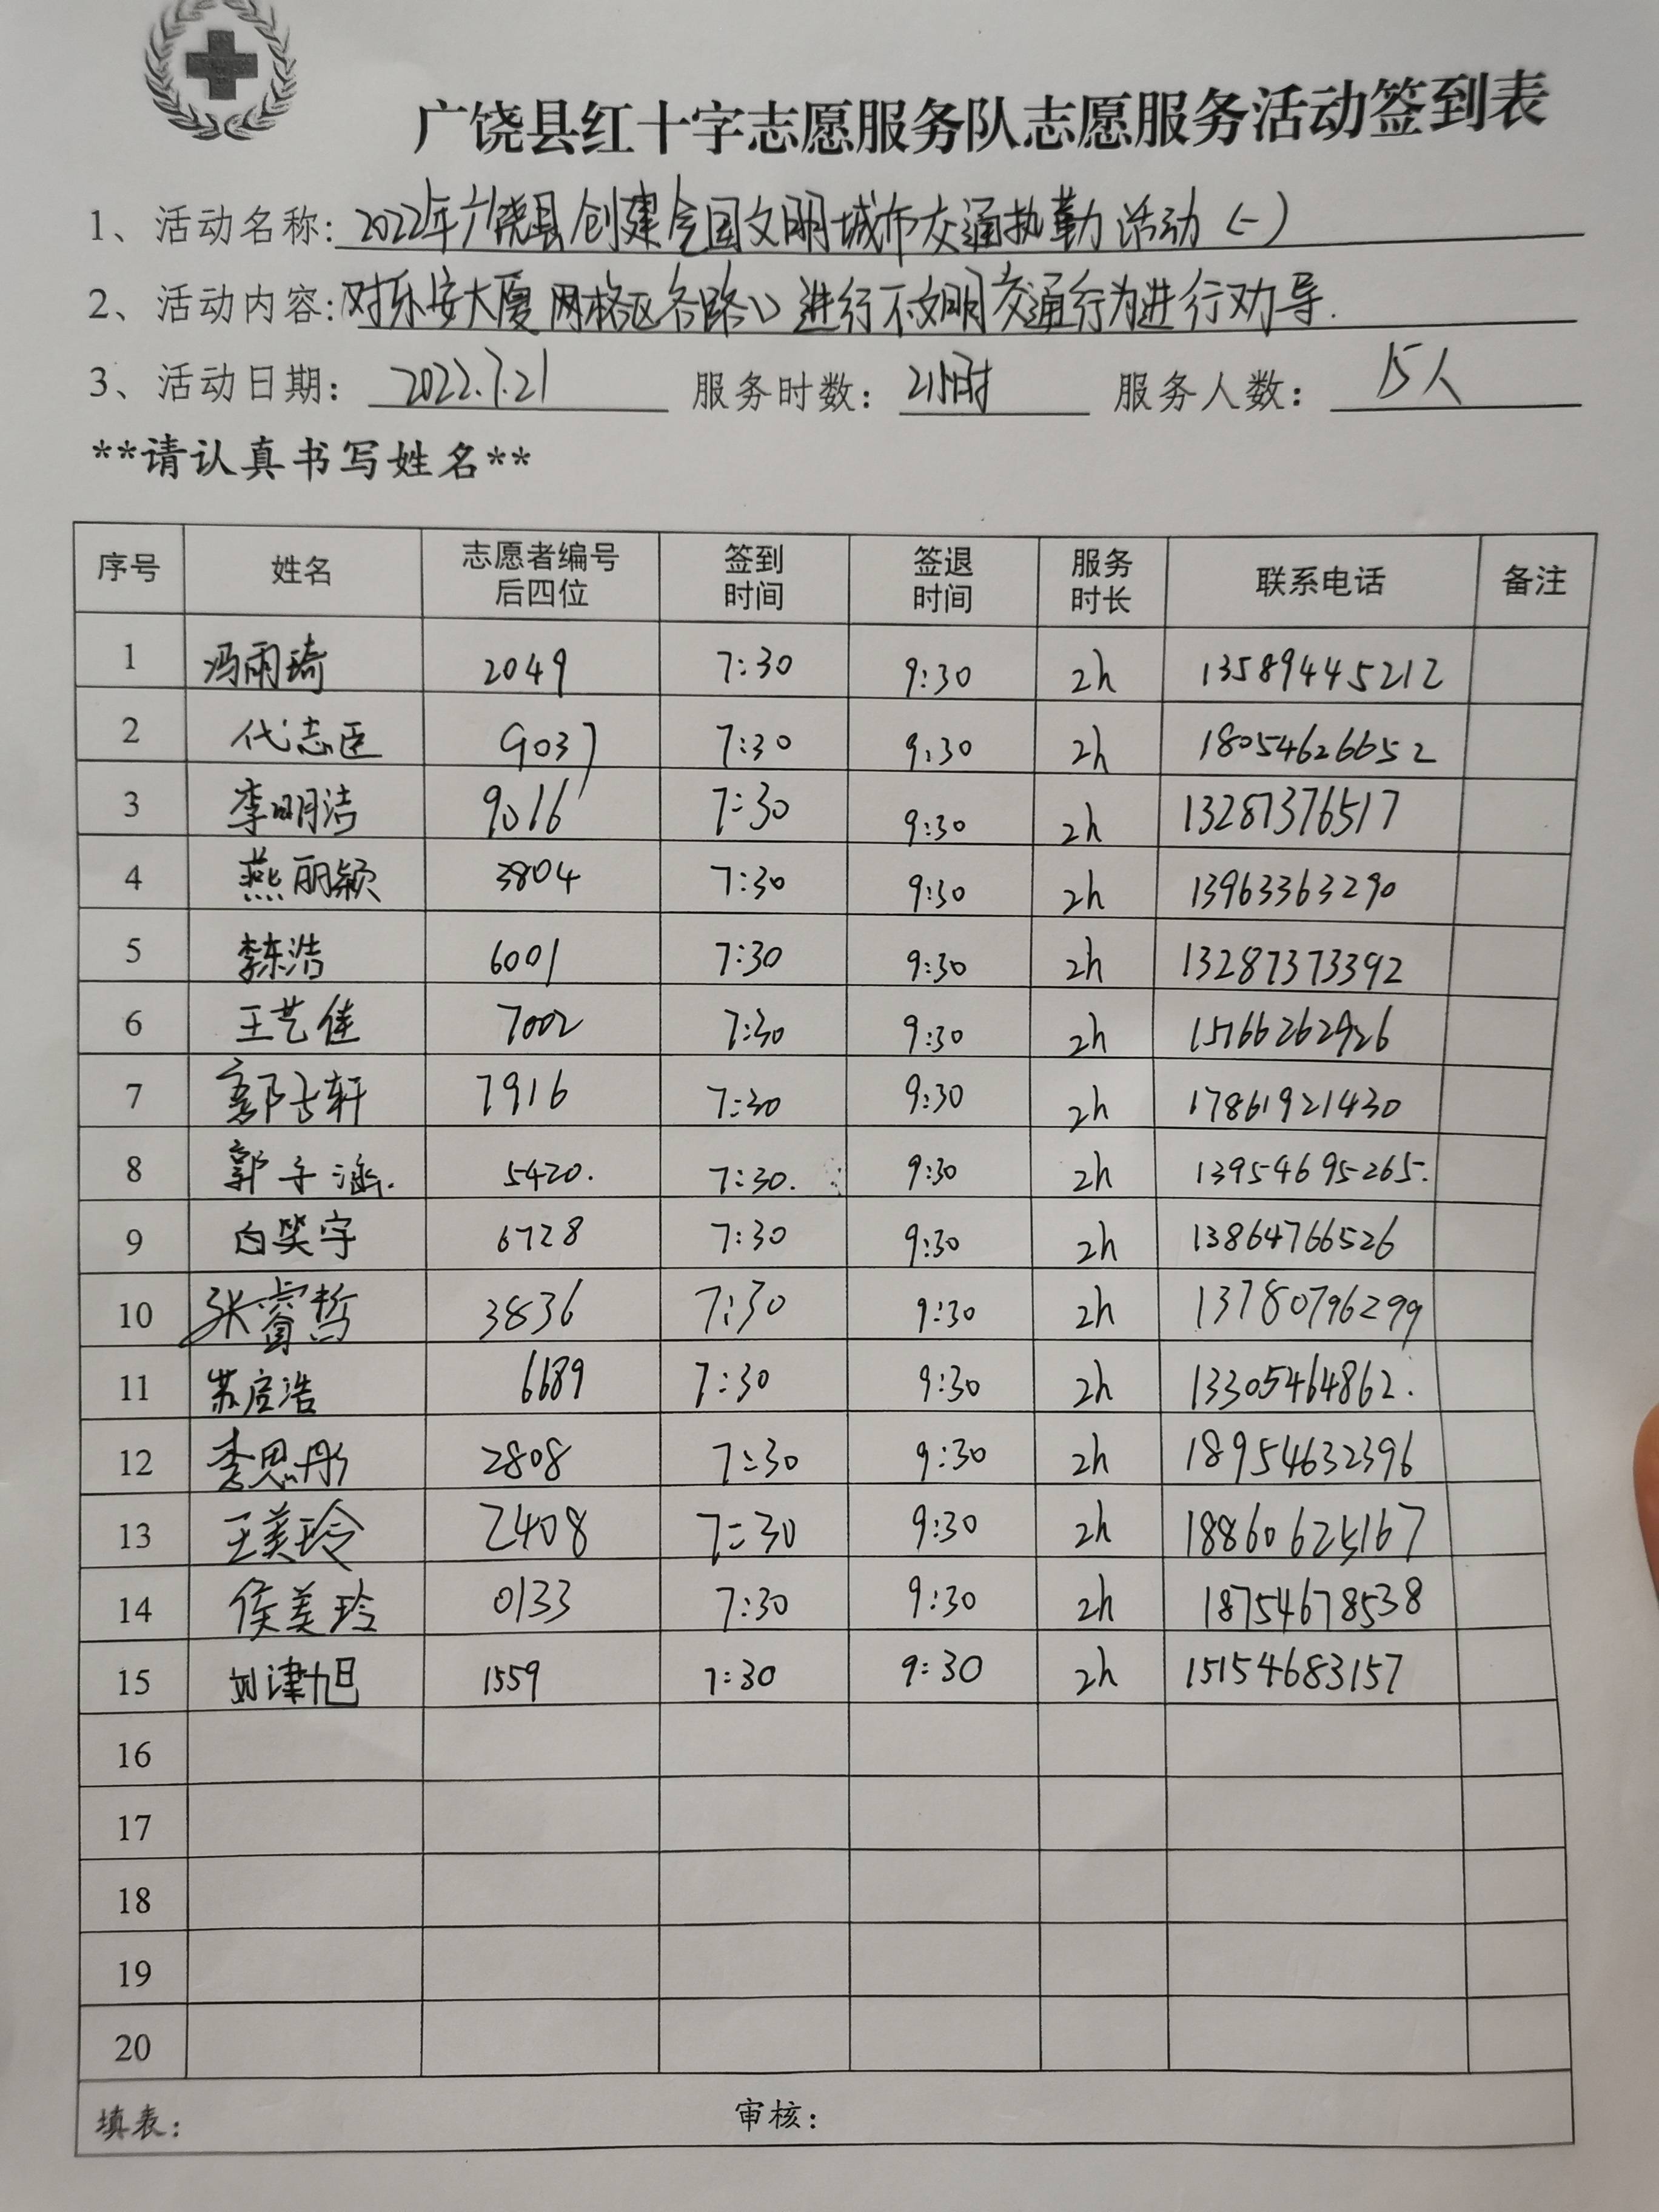 广饶县红十字志愿服务队志愿服务活动签到表
1、活动名称: 2022年广饶县创建全国文明城市交通执勤活动(一)
2、活动内容: 对乐安大厦网格区各路口进行不文明交通行为进行劝导.
3、活动日期: 2022.7.21 服务时数: 2小时 服务人数: 15人
**请认真书写姓名**
序号 姓名 志愿者编号后四位 签到时间 签退时间 服务时长 联系电话 备注
1 冯雨琦 2049 7:30 9:30 2h 13589445212
2 代志臣 9037 7:30 9:30 2h 18054626652
3 李明洁 9016 7:30 9:30 2h 13287376517
4 燕丽颖 3804 7:30 9:30 2h 13963363290
5 李东浩 6001 7:30 9:30 2h 13287373392
6 王艺佳 7002 7:30 9:30 2h 15166262926
7 7916 7:30 9:30 2h 17861921430
8 郭子涵. 5420. 7:30. 9:30 2h 13954695265.
9 白笑宇 6728 7:30 9:30 2h 13864766526
10 张睿哲 3836 7:30 9:30 2h 13780796299
11 苏启浩 6689 7:30 9:30 2h 13305464862.
12 李思彤 2808 7:30 9:30 2h 18954632396
13 王美玲 2408 7:30 9:30 2h 18860625167
14 侯美玲 0133 7:30 9:30 2h 18754678538
15 刘津旭 1559 7:30 9:30 2h 15154683157
16
17
18
19
20
填表: 审核: